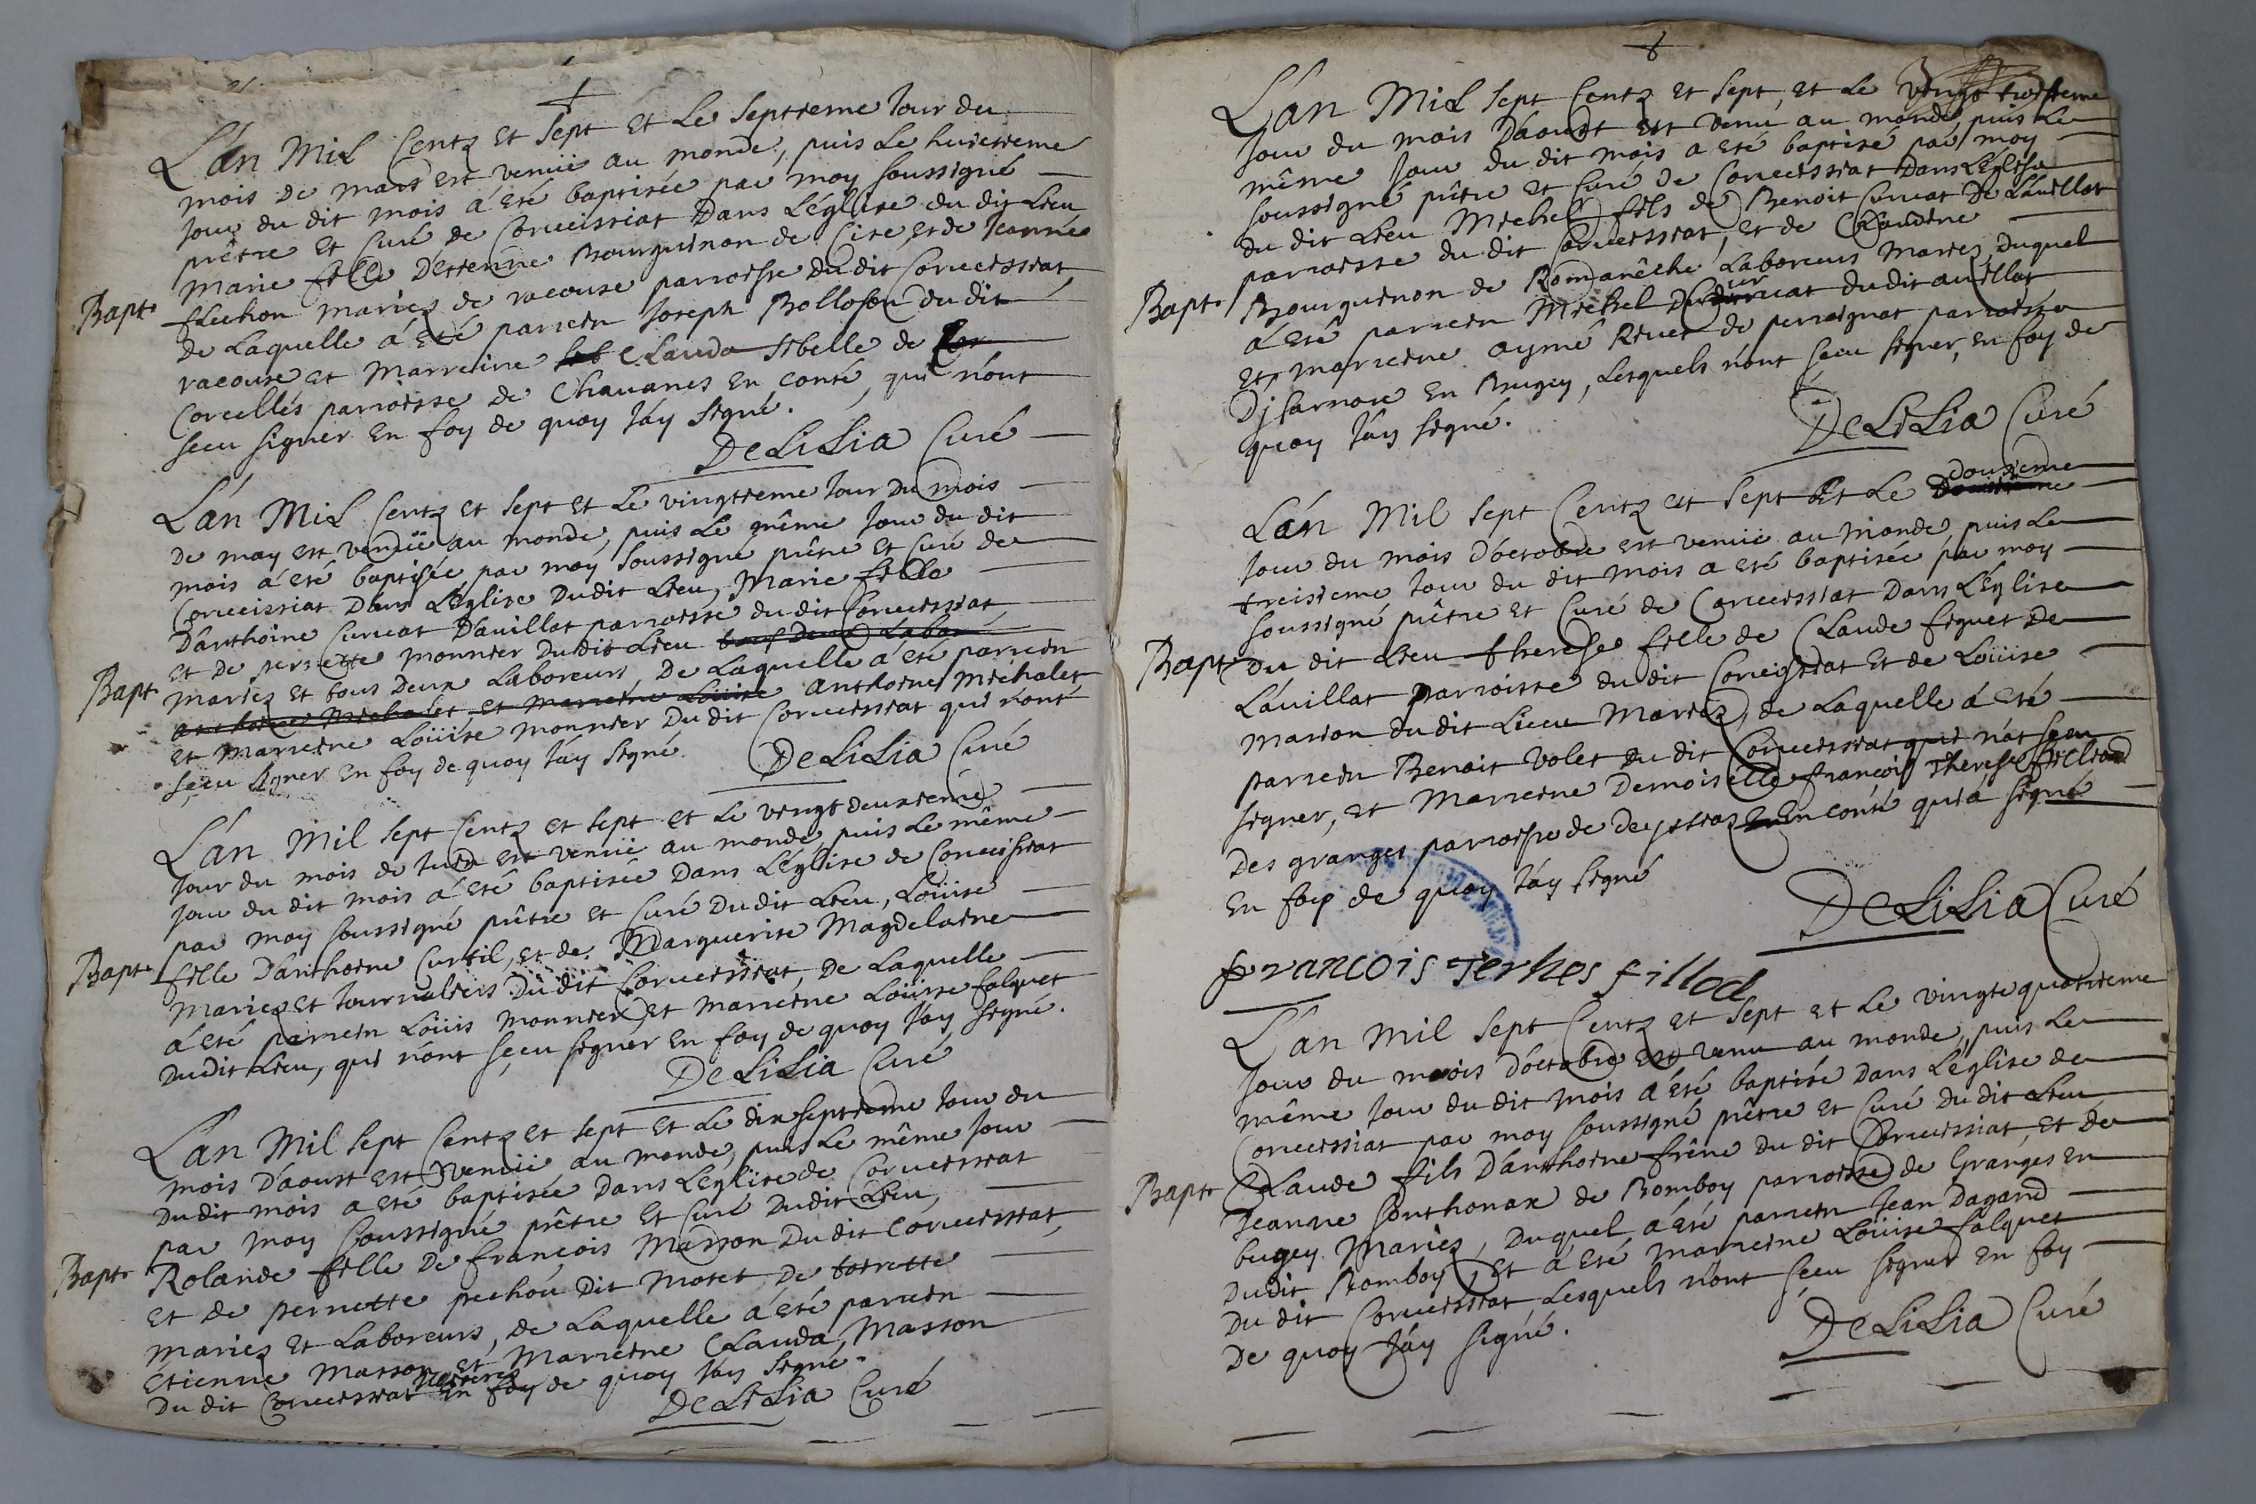 L'án Mil Centz et sept et Le septieme Jour du
mois de mars est venüe au monde, puis Le huictieme
Jour du dit mois á été baptisée par moy soussigné
prêtre et Curé de Corveissiat Dans L'église du dit Lieu
Marie fille D'etienne Bourguinon de Cise, et de Jeanne
fluchon mariez de racouse parroisse du dit Corveissiat,
Bapt. de Laquelle á été parrein Joseph Bolloson du dit
racouse et Marreine Clauda Sibelle de
Corcelles parroisse de Chavanes en conté, qui n'ont
sceu signer en foy de quoy J'áy signé.
DeLiLia Curé
L'án Mil Centz et sept et Le vingtieme Jour Du mois
de may est venüe au monde, puis Le même Jour du dit
mois á été baptisée par moy soussigné prêtre et Curé de
Corveissiat Dans L'église Dudit Lieu, Marie fille
D'anthoine Curvat D'avillat parroisse du dit Corveissiat,
et de pernette monnier Dudit Lieu tous Deux Labor
Bapt mariez et tous Deux Laboreurs, De Laquelle á été parrein
anthoine Michalet et Marreine Loüise anthoine Michalet
et Marreine Loüise monnier Du dit Corveissiat qui n'ont
sçeu signer en foy de quoy J'áy signé. DeLiLia Curé
L'án Mil sept Centz et sept et Le vingt deuxieme
Jour du mois de Juin est venüe au monde, puis Le même
Jour du dit mois á été baptisée Dans L'église de Corveissiat
par moy soussigné prêtre et Curé Dudit Lieu, Loüise
Bapt. fille D'anthoine Curtil, et de Marguerite Magdelaine
Mariez et Journaliers Du dit Corveissiat, De Laquelle
á été parrein Loüis Monnier, et Marreine Loüise falquet
Dudit Lieu, qui n'ont sçeu signer en foy de quoy J'áy signé.
DeLiLia Curé
L'an Mil sept Centz et sept et Le dix septieme Jour du
mois D'aoust est venüe au monde, puis Le même Jour
Du dit mois a eté baptisée Dans L'église de Corveissiat
par moy soussigné prêtre et Curé Dudit Lieu,
Bapt. Rolande fille De françois Masson Du dit Corveissiat,
et de pernette pechou Dit Motet, De toirette
mariez et Laboreurs, de Laquelle á été parrein
Etienne Masson et Marreine Clauda Masson
Du dit Corveissiat en foy de quoy J'áy signé.
DeLiLia Curé
L'án Mil sept Centz et sept, et Le vingt troisieme
Jour du mois D'aoust est venu au monde, puis Le
même Jour du dit mois a été baptisé par moy
soussigné prêtre et Curé de Corveissiat Dans L'église
du dit Lieu Michel fils de Benoit Curvat De L'avillat
parroisse du dit Corveissiat, et de Claudine
Bapt. Bourguinon de Romanêche Laboreurs Mariez, duquel
á été parrein Michel Curvat du dit avillat
et, marreine aymé Rivet de perrignat parroisse
D'jsarnore en Bugey, Lesquels n'ont sçeu signer, en foy de
quoy J'áy signé.
DeLiLia Curé
L'án Mil sept Centz et sept et Le douzieme
Jour du mois D'octobre est venüe au monde, puis Le
treisieme Jour du dit mois a eté baptisée par moy
soussigné prêtre et Curé de Corveissiat Dans L'église
Bapt. Du dit Lieu therese fille de Claude figuet De
L'avillat parroisse du dit Corveissiat et de Loüise
Marion du dit Lieeu Mariez, de Laquelle á été
parrein Benoit Volet du dit Corveissiat qui n'át sceu
signer, et Marreine Demoiselle françois Therese filliod
Des granges parroisse de deyssiaz en conté qui á signé
en foy de quoy J'áy signé
DeLiLia Curé
francois Terhes fillod
L'án Mil sept Centz et sept et Le vingte quatrieme
Jour du mois D'octobre est venu au monde, puis Le
même Jour du dit mois a été baptisé Dans L'église de
Corveissiat par moy soussigné prêtre et Curé Du dit Lieu
Bapt. Claude fils D'anthoine frêne du dit Corveissiat, et de
Jeanne Sonthonax de Bomboy parroisse de Granges en
bugey Mariez, Duquel á été parrein Jean Dagand
Dudit Bomboy, et á été marreine Loüise falquet
Du dit Corveissiat, Lesquels n'ont sçeu signer en foy
De quoy J'áy signé.
DeLiLia Curé